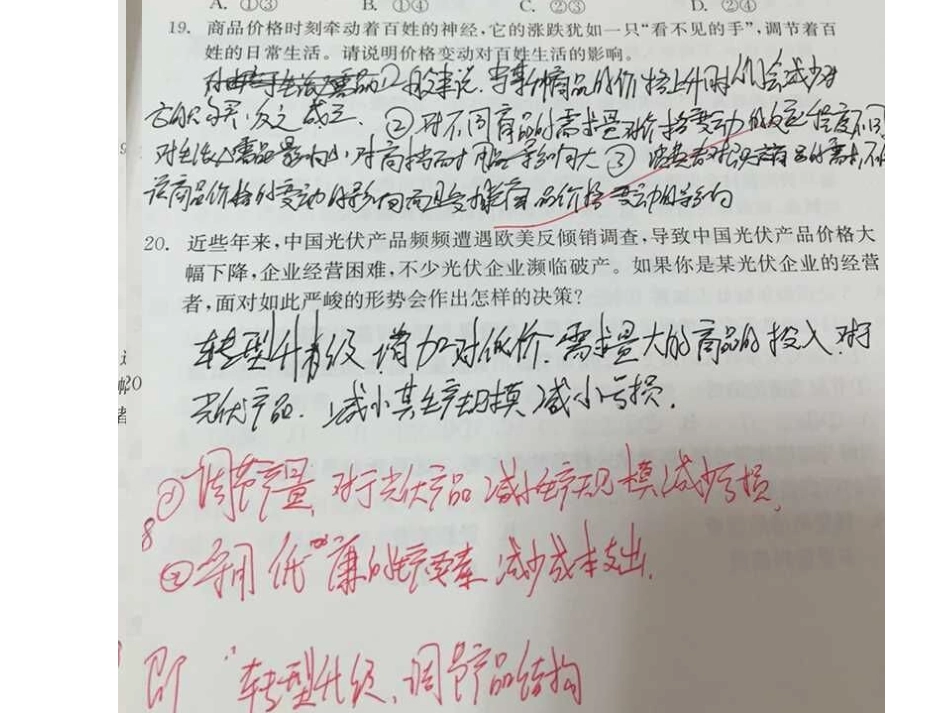 A. ①③ B. ①④ C. ②③ D. ②④
19. 商品价格时刻牵动着百姓的神经,它的涨跌犹如一只“看不见的手”,调节着百
姓的日常生活。请说明价格变动对百姓生活的影响。
①一般来说,当某种商品的价格上升时,人们会减少对
它的购买,反之成立. ②对不同商品的需求量对价格变动的反应程度不同
对生活必需品影响小,对高档耐用品影响大 ③消费者对既定商品的需求,不仅
该商品价格的变动的影响而且受相关商品价格变动的影响
20. 近些年来,中国光伏产品频频遭遇欧美反倾销调查,导致中国光伏产品价格大
幅下降,企业经营困难,不少光伏企业濒临破产。如果你是某光伏企业的经营
者,面对如此严峻的形势会作出怎样的决策?
转型升级 增加对低价.需求量大的商品的投入.对于
光伏产品.减小其生产规模 减小亏损.
①调节产量,对于光伏产品减小生产规模减少亏损,
8
②采用低廉的生产要素 减少成本支出.
即 转型升级、调节产品结构